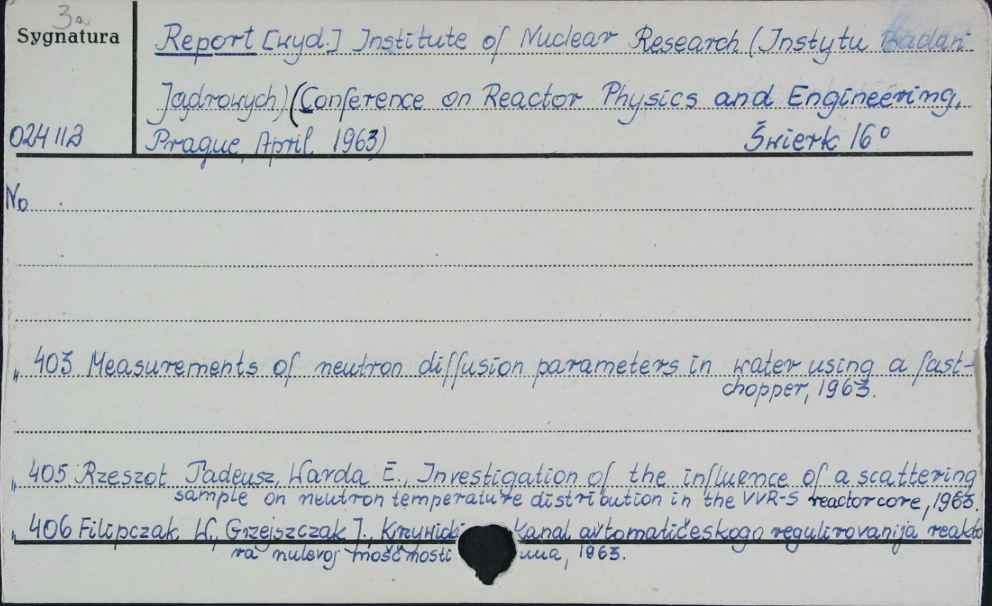 3a
Sygnatura
Report [wyd.] Institute of Nuclear Research (Instytu Badań
Jądrowych) (Conference on Reactor Physics and Engineering,
02411B Prague, April 1963) Świerk 16°
No
" 403 Measurements of neutron diffusion parameters in water using a fast-
chopper, 1963.
" 405 Rzeszot Tadeusz, Warda E., Investigation of the influence of a scattering
sample on neutron temperature distribution in the VVR-S reactor core, 1963.
" 406 Filipczak W., Grzejszczak J., Kanal avtomatičeskogo regulirovanija reakto
ra nulevoj moščnosti 1963.